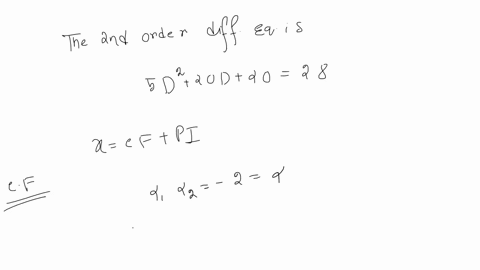 The 2nd order diff. eq is
5D²+20D+20 = 28
x = CF + PI
C.F
α₁ α₂ = - 2 = α